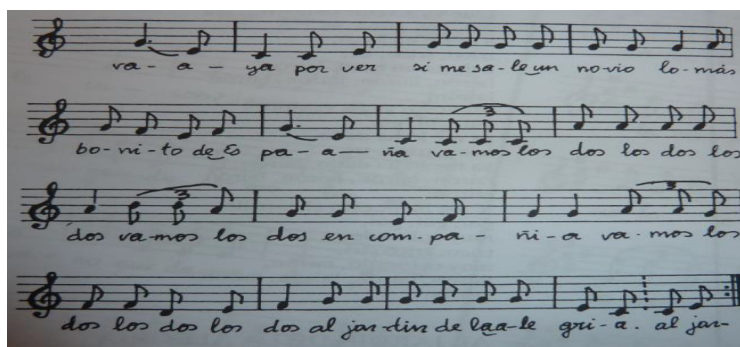 va-a-ya por ver si me sa-le un no-vio lo-más
bo-ni-to de Es pa-a-ña va-mos los dos los dos los
3
dos va-mos los dos en com-pa-ñi-a va-mos los
3 3
dos los dos los dos al jar-din de la a-le gri-a. al jar-